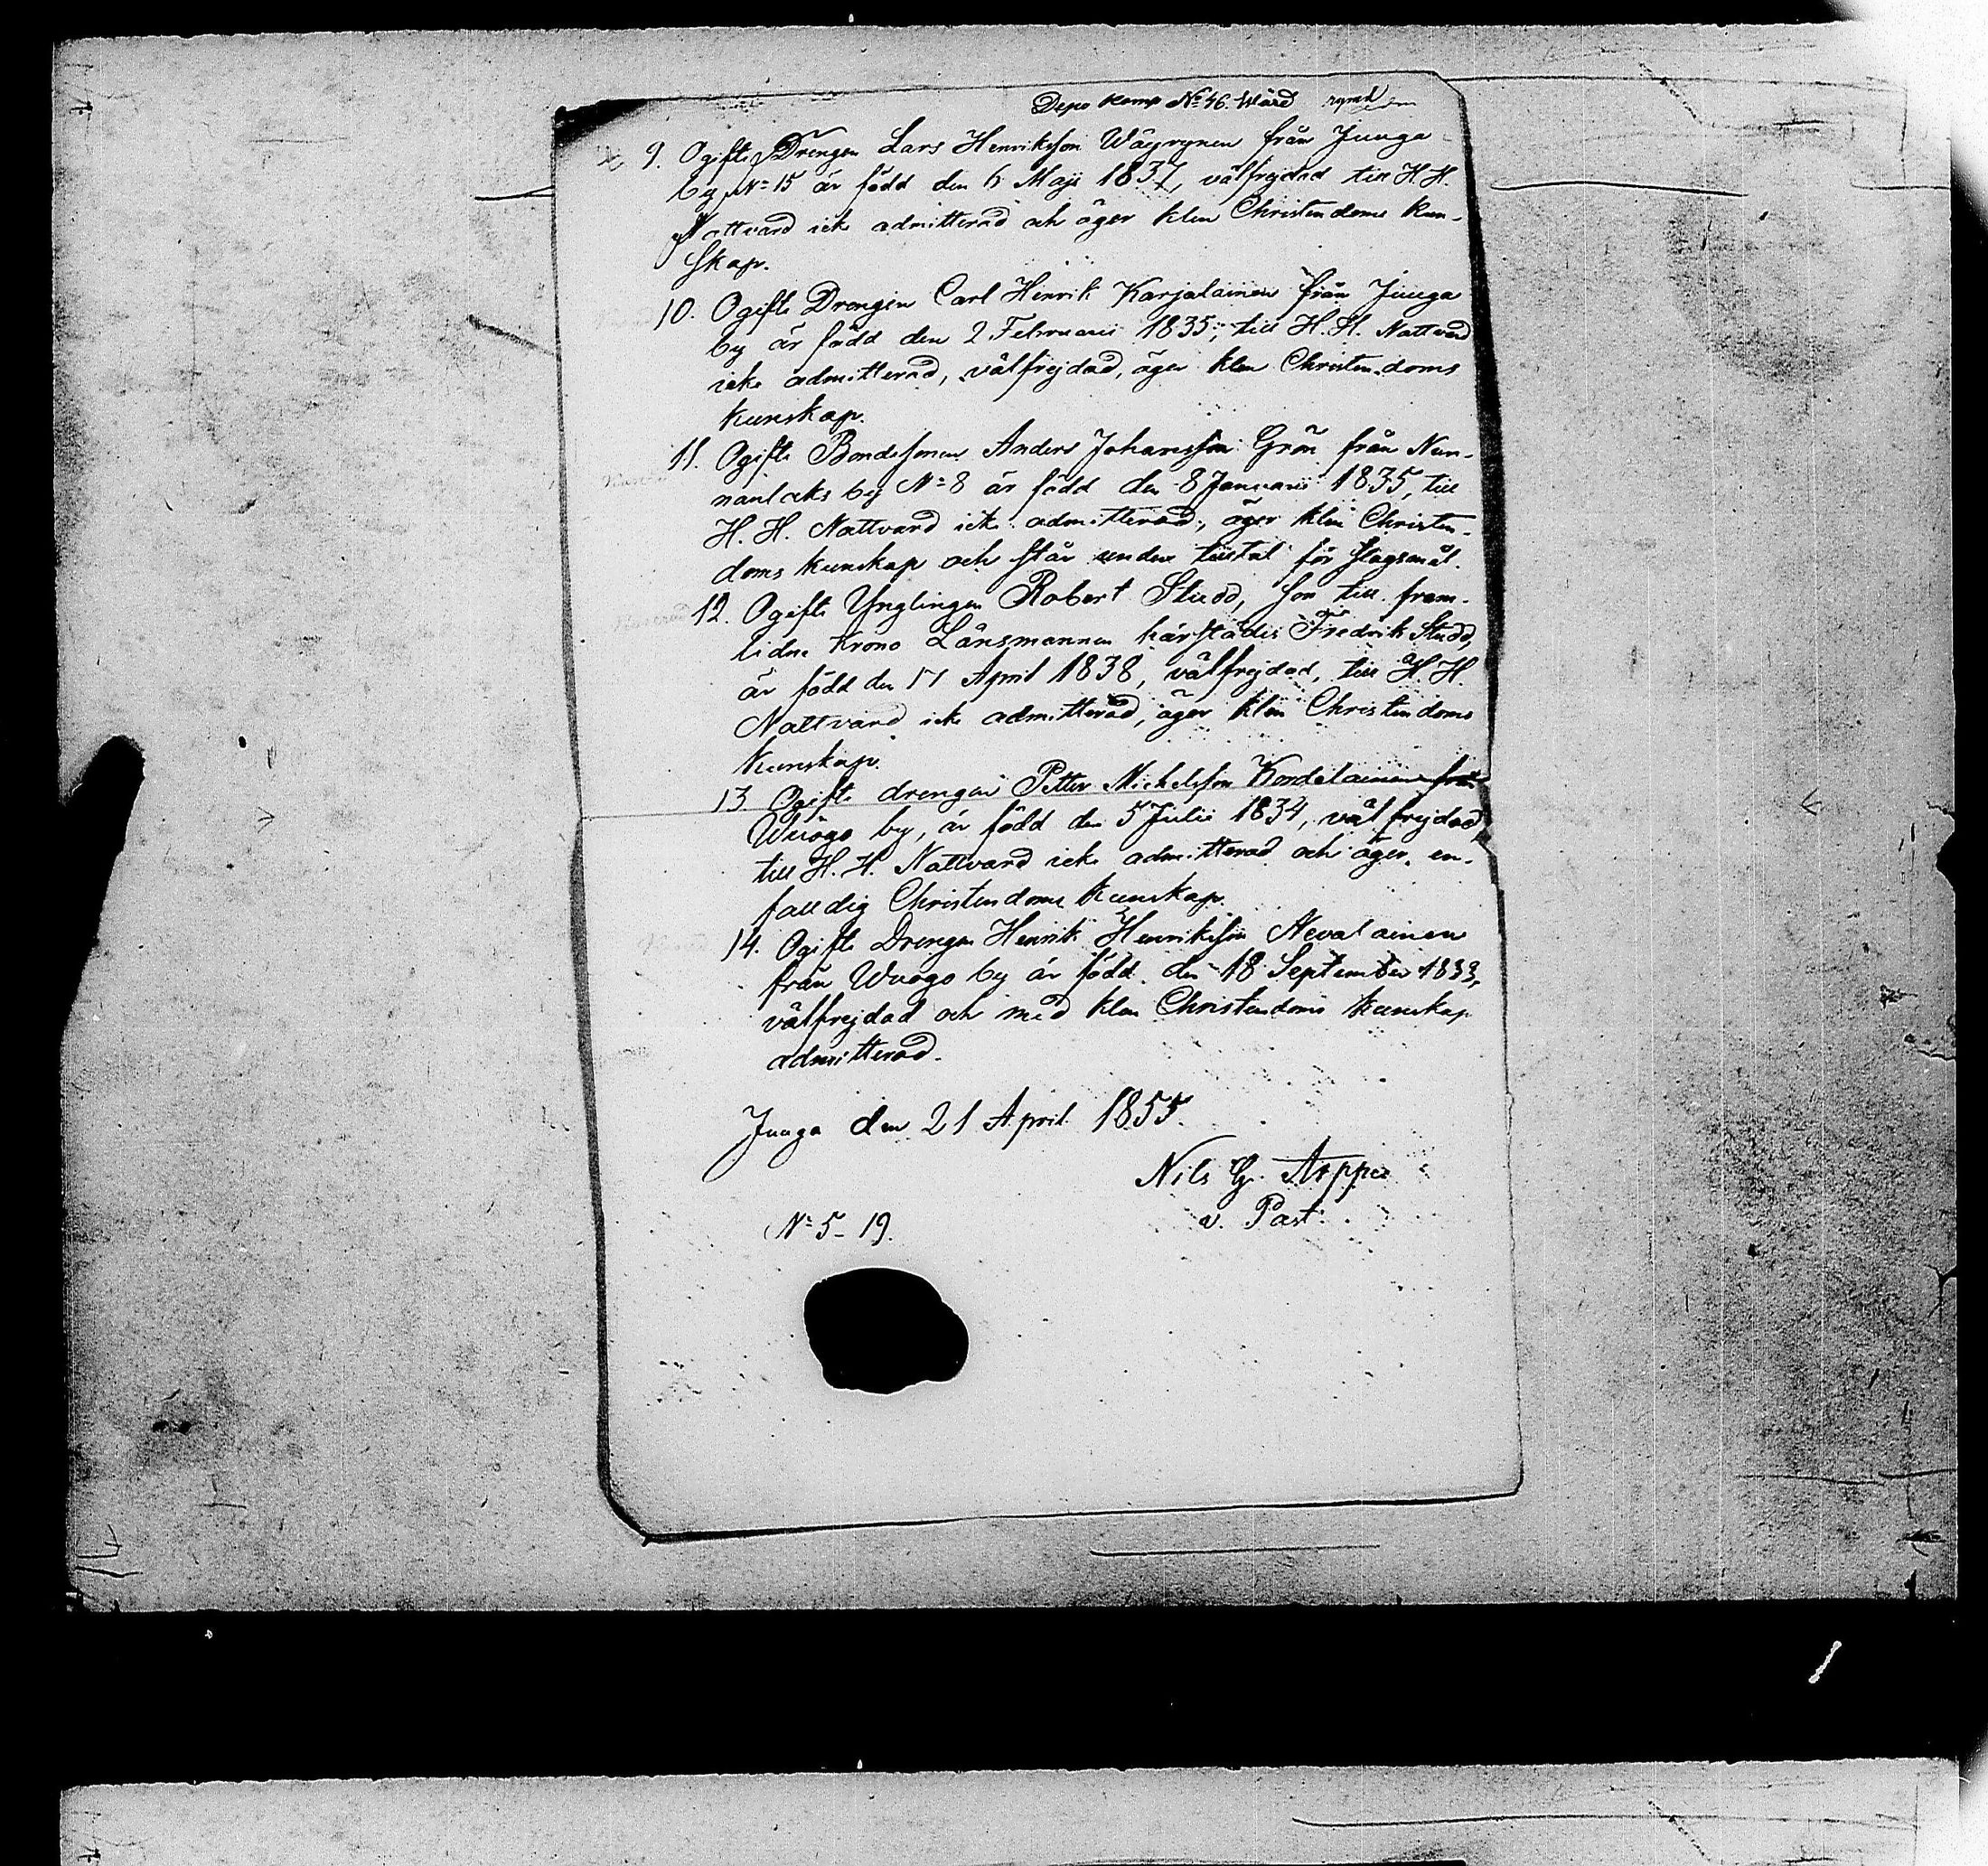 Depo komp No 46. Wärd rymd
9. Ogifte Drengen Lars Henriksson Wäyrynen från Juuga
by No 15 är född den 6 Maji 1837, välfrejdad till H. H.
Nattvard icke admitterad och äger klen Christendoms kun-
skap.
10. Ogifte Drengen Carl Henrik Karjalainen från Juuga
by är född den 2 Februarii 1835, till H. H. Nattvard
icke admitterad, välfrejdad, äger klen Christendoms
kunskap.
11. Ogifte Bondesonen Anders Johansson Grön från Nun-
nanlaks by No 8 är född den 8 Januarii 1835, till
H. H. Nattvard icke admitterad, äger klen Christen-
doms kunskap och står under tiltal för slagsmål.
12. Ogifte Ynglingen Robert Studd, son till fram-
lidne Krono Länsmannen härstädes Fredrik Studd,
är född den 17 April 1838, välfrejdad, till H. H.
Nattvard icke admitterad, äger klen Christendoms
kunskap.
13. Ogifte drengen Petter Michelsson Kordelainen från
Wuogo by, är född den 5 Julii 1834, välfrejdad
till H. H. Nattvard icke admitterad och äger en-
falldig Christendoms kunskap.
14. Ogifte Drengen Henrik Henriksson Nevalainen
från Wuogo by är född den 18 September 1833,
välfrejdad och med klen Christendoms kunskap
admitterad.
Juuga den 21 April 1855.
Nils G. Arppe
v. Past.
No 5-19.